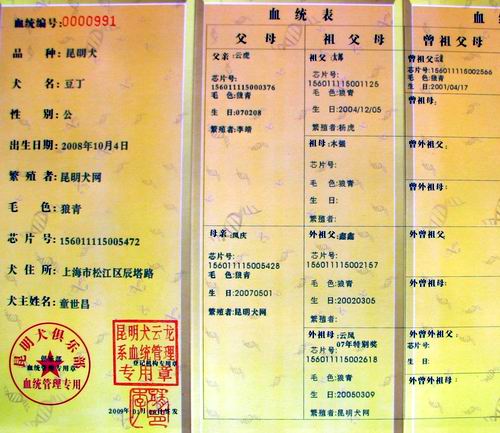 血统编号:0000991
品 种: 昆明犬
犬 名: 豆丁
性 别: 公
出生日期: 2008年10月4日
繁 殖 者: 昆明犬网
毛 色: 狼青
芯 片 号: 156011115005472
犬 住 所: 上海市松江区辰塔路
犬主姓名: 童世昌
昆明犬俱乐部
血统管理专用章
血统管理专用
昆明犬云龙
系血统管理
登记机构专用章
专用章
血统表
父 母
父亲:云虎
芯片号:
156011115000376
毛 色:狼青
生 日:070208
繁殖者:李靖
母亲:凤庆
芯片号:
156011115005428
毛 色:狼青
生 日:20070501
繁殖者:昆明犬网
祖 父 母
祖父:
芯片号:
156011115001125
毛 色:狼青
生 日:2004/12/05
繁殖者:杨虎
祖母:水强
芯片号:
毛 色:狼青
生 日:
繁殖者:
外祖父:鑫鑫
芯片号:
156011115002157
毛 色:狼青
生 日:20020305
繁殖者:
外祖母:云凤
07年特别奖
芯片号:
156011115002618
毛 色:狼青
生 日:20050309
繁殖者:昆明犬网
曾祖父母
曾祖父:
芯片号:156011115002566
毛 色:狼青
生 日:2001/04/17
曾祖母:
曾外祖父:
曾外祖母:
外曾祖父:
外曾祖母:
外曾外祖父:
芯片号:
毛 色:
生 日:
外曾外祖母: